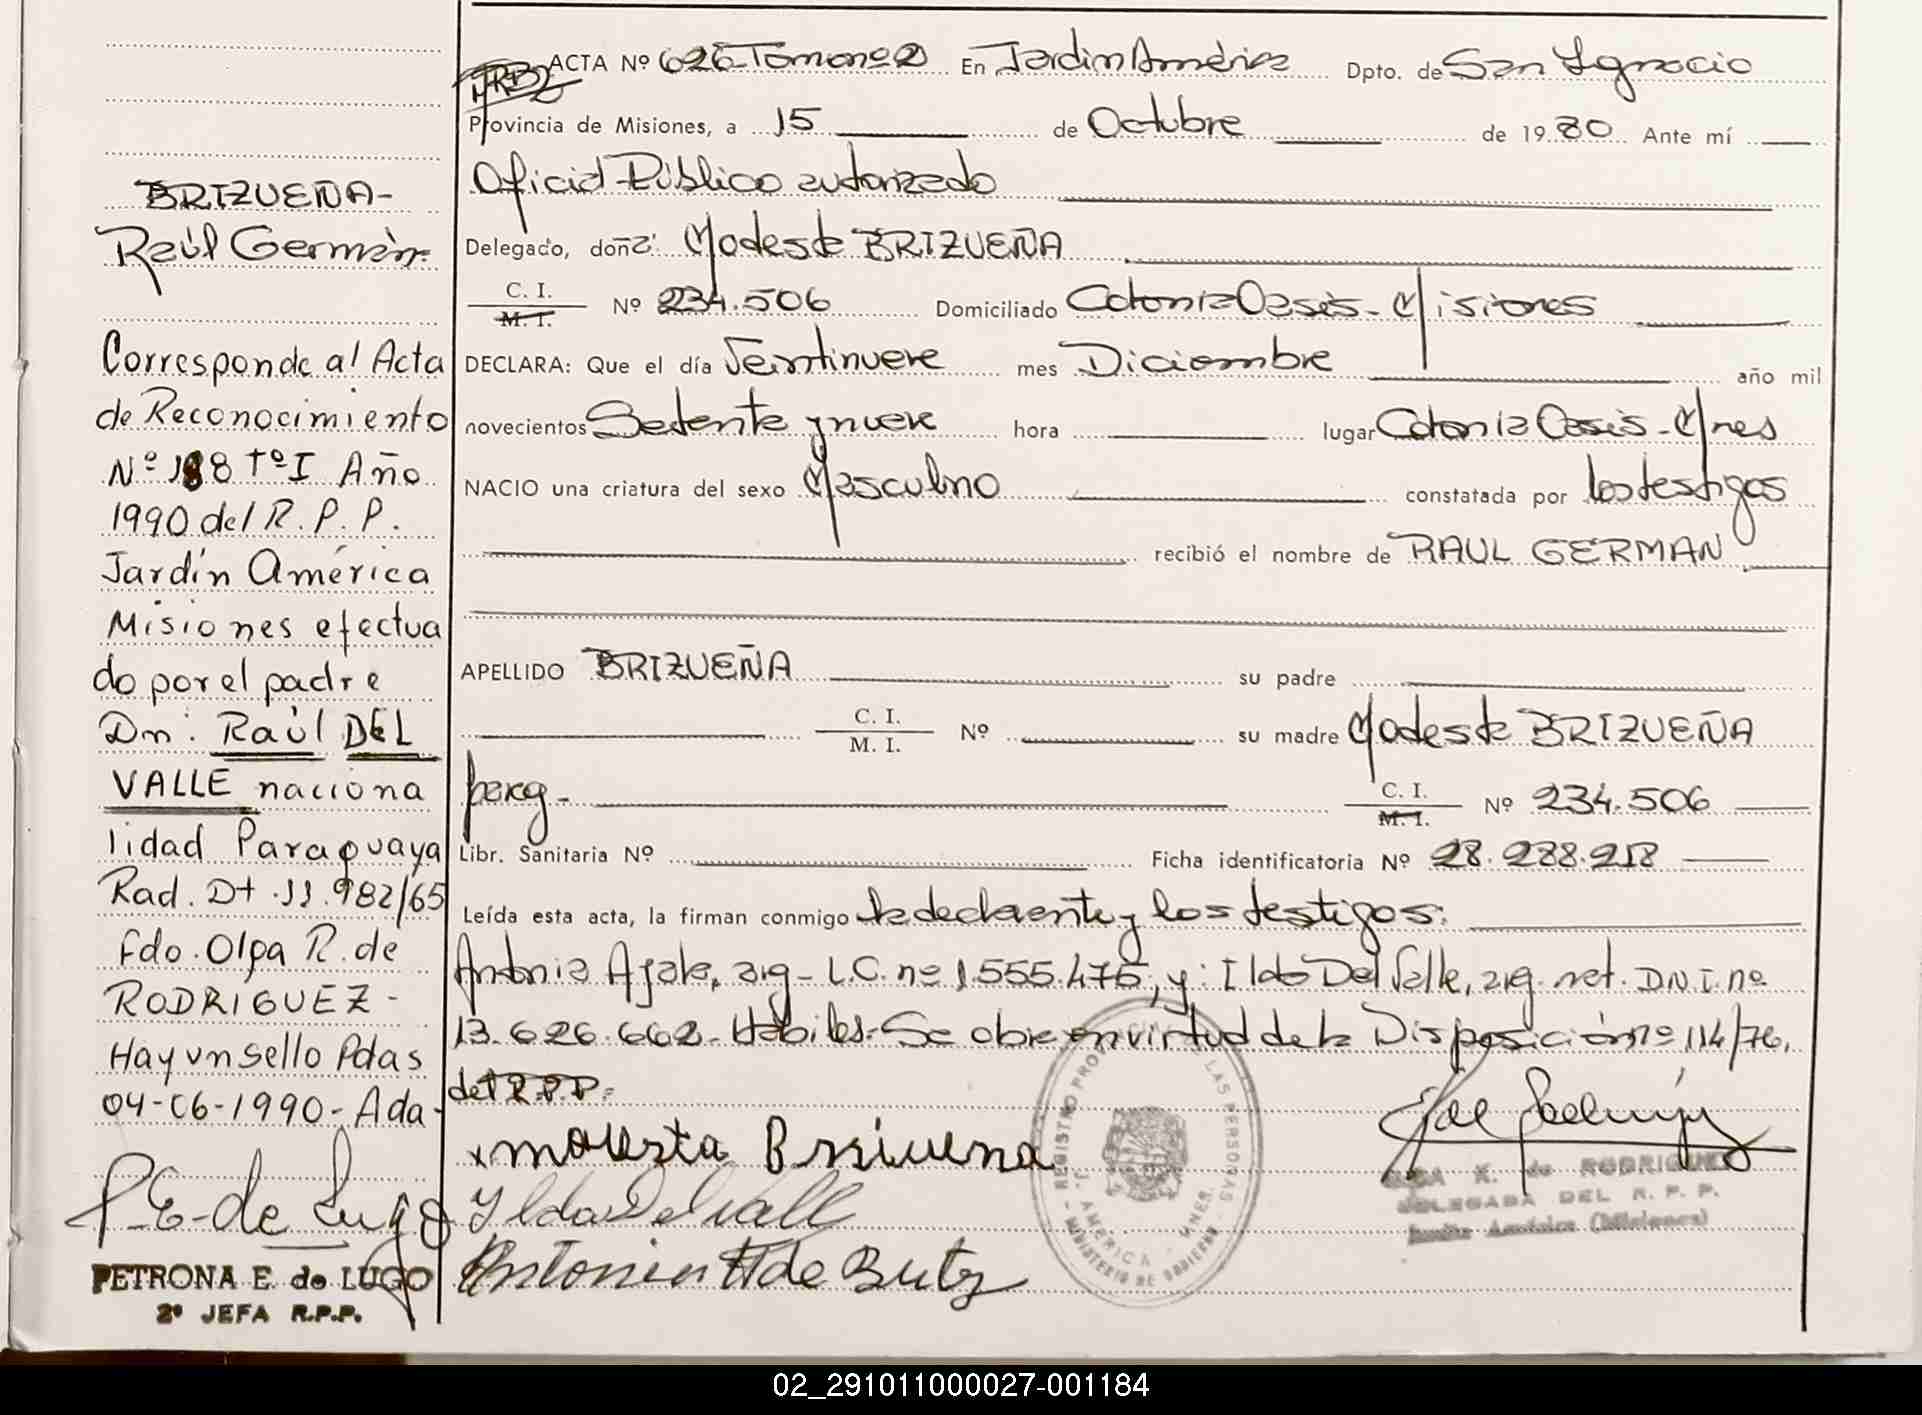 BRIZUEÑA-
Raúl Germán
Corresponde al Acta
de Reconocimiento
Nº 188 Tº I Año
1990 del R. P. P.
Jardín América
Misiones efectua
do por el padre
Dn: Raúl DEL
VALLE naciona
lidad Paraguaya
Rad. Dt. 11.982/65
Fdo. Olga R. de
RODRIGUEZ-
Hay un sello Pdas
04-06-1990- Ada-
P. E. de Lugo
PETRONA E. de LUGO
2º JEFA R.P.P.
ACTA Nº 626-Tomo nº 2 En Jardín América Dpto. de San Ignacio
Provincia de Misiones, a 15 de Octubre de 1980 Ante mí
Oficial Público autorizado
Delegado, doña: Modesta BRIZUEÑA
C. I.
M. I. Nº 234.506 Domiciliado Colonia Oasis- Misiones
DECLARA: Que el día Veintinueve mes Diciembre año mil
novecientos Setenta y nueve hora lugar Colonia Oasis-Mnes
NACIO una criatura del sexo Masculino constatada por los testigos
recibió el nombre de RAUL GERMAN
APELLIDO BRIZUEÑA su padre
C. I.
M. I. Nº su madre Modesta BRIZUEÑA
parag- C. I.
M. I. Nº 234.506
Libr. Sanitaria Nº Ficha identificatoria Nº 28.288.218
Leída esta acta, la firman conmigo la declarante y los testigos:
Antonia Ayala, arg- L.C. nº 1.555.475, y: Ilda Del Valle, arg. nat. D.N.I. nº
13.626.662- Hábiles- Se abre en virtud de la Disposición nº 114/76,
del R.P.P.
x modesta Brizuena
Ylda Del Valle
Antonia A de Butz
REGISTRO PROVINCIAL DE LAS PERSONAS
J. AMERICA - MNES.
MINISTERIO DE GOBIERNO
OLGA R. de RODRIGUEZ
DELEGADA DEL R. P. P.
Jardín América (Misiones)
02_291011000027-001184